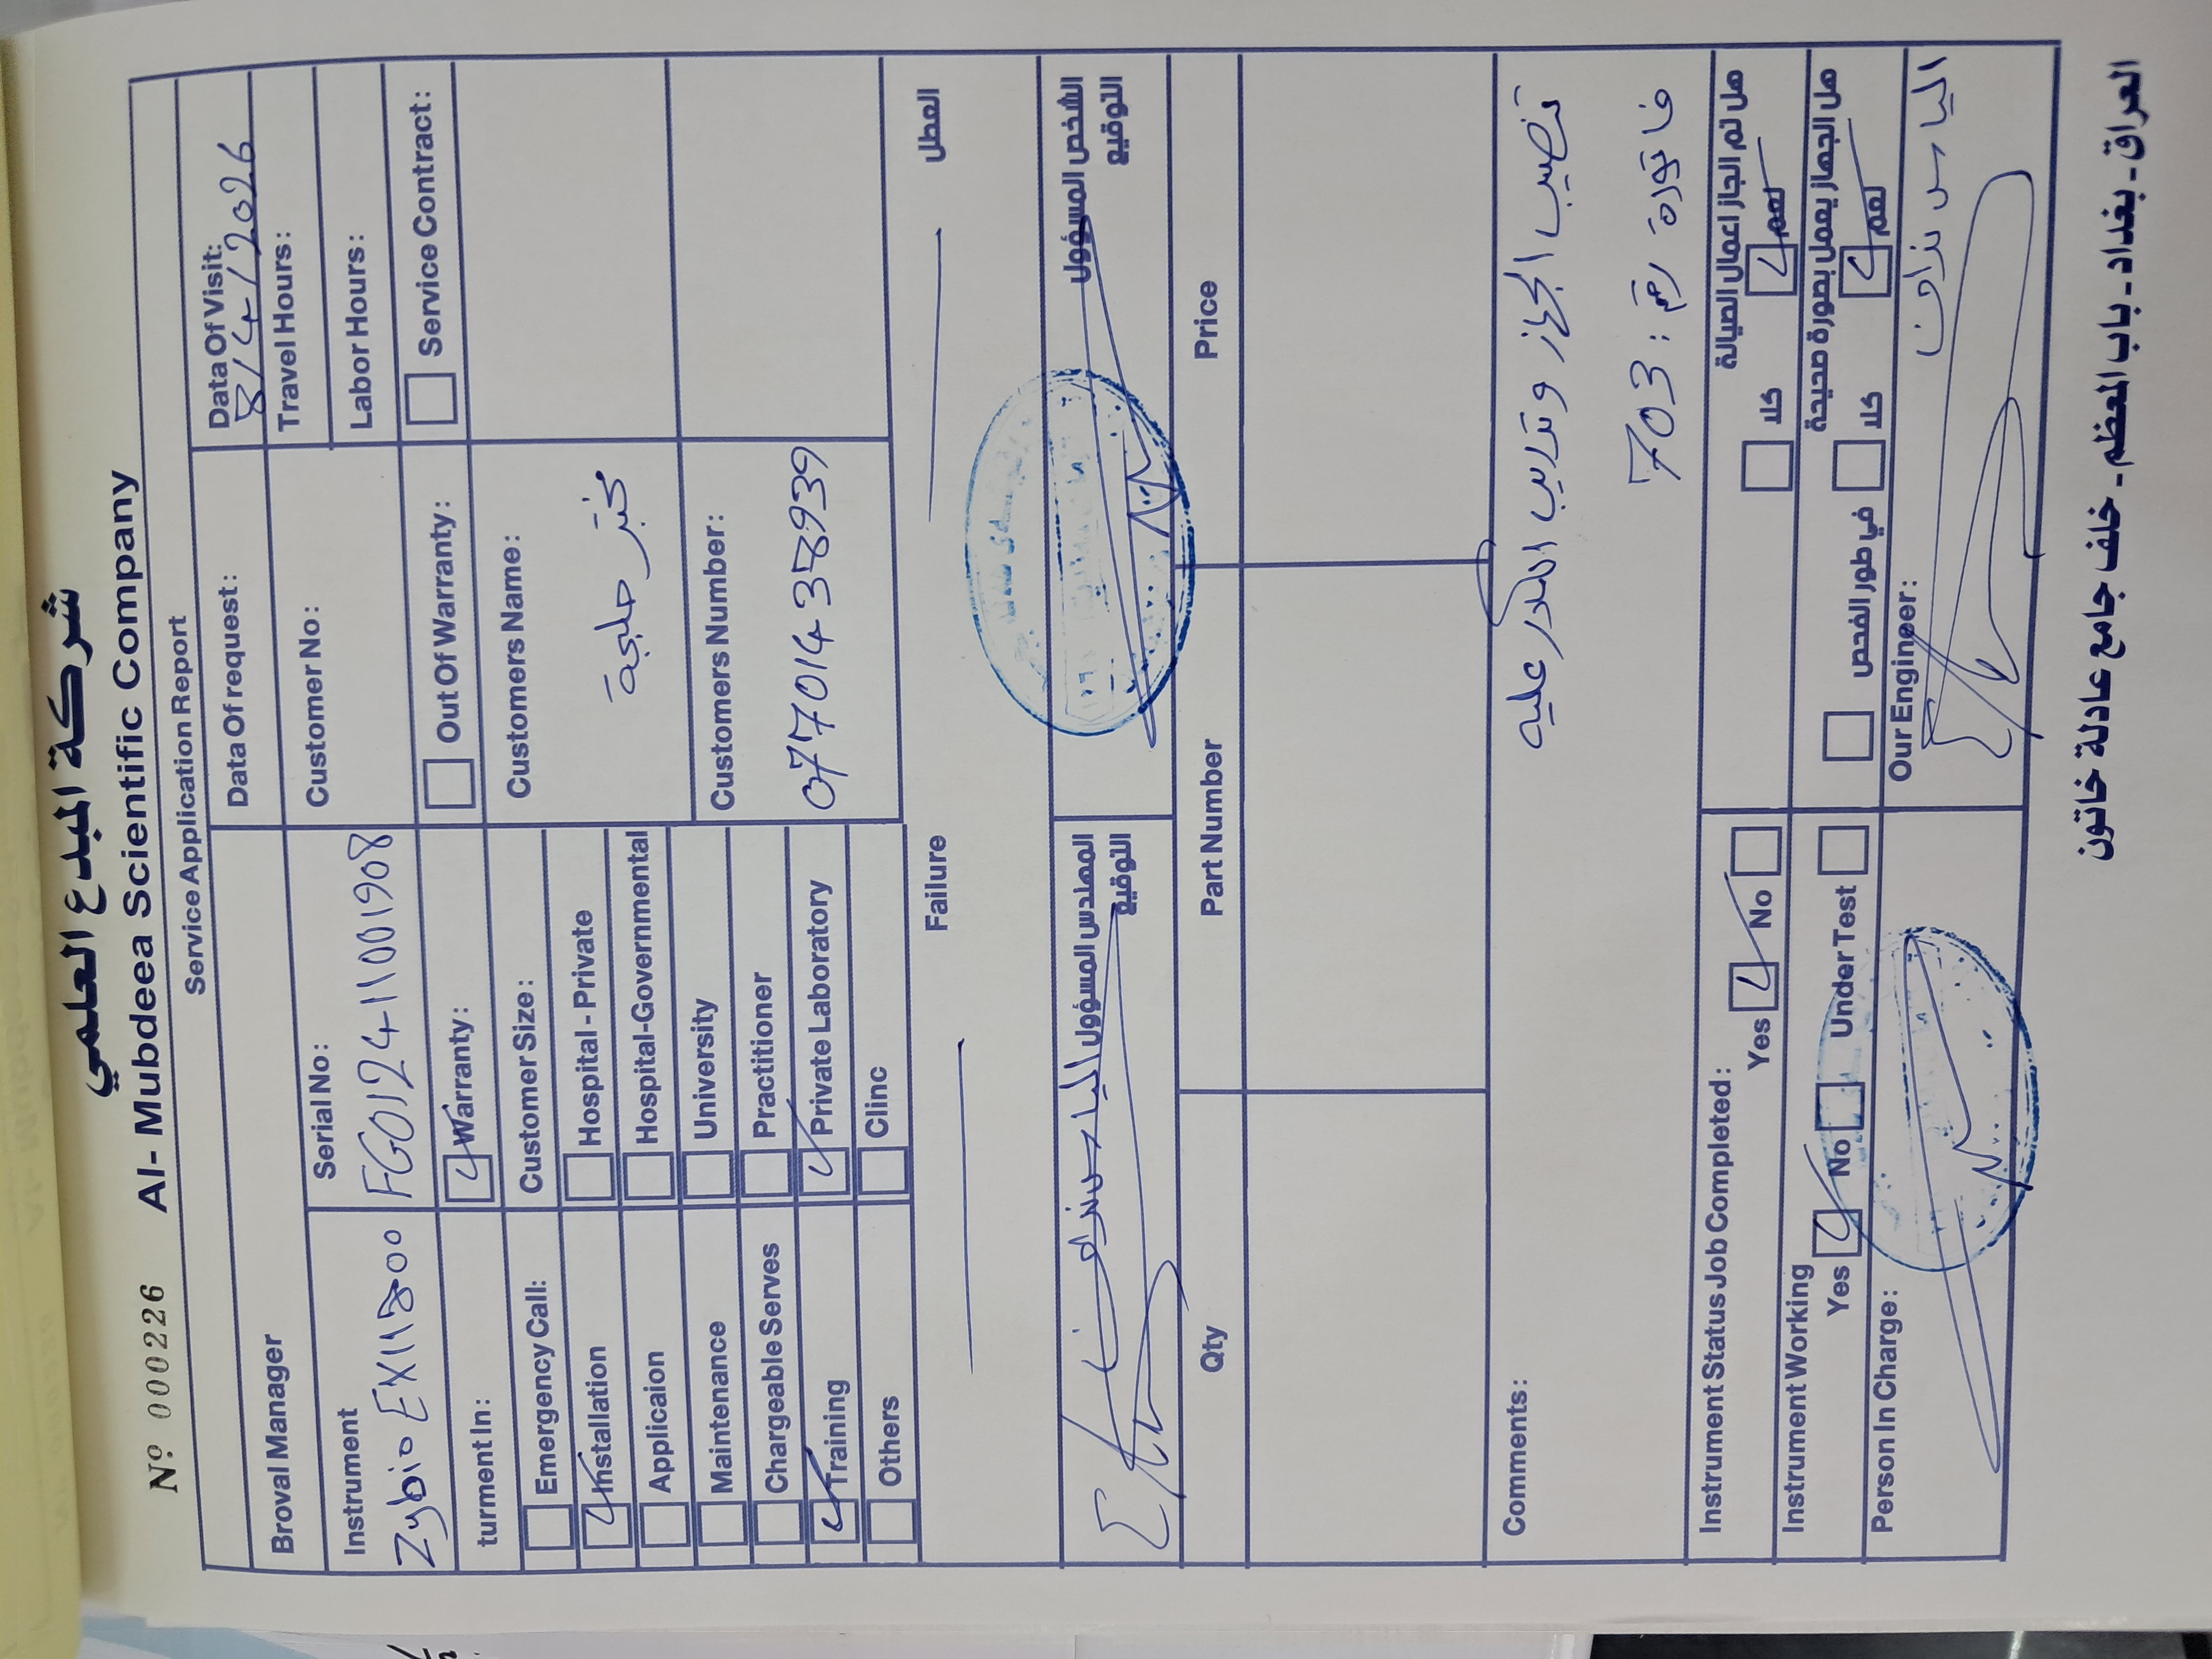 شركة المبدع العلمي
Nº 000226 Al- Mubdeea Scientific Company
Service Application Report
Data Of request: Data Of Visit:
8/4/2026
Broval Manager Customer No: Travel Hours:
Labor Hours:
Instrument Serial No:
Zybio EXI1800 FG012411001908
Warranty: Out Of Warranty: Service Contract:
turment In: Customer Size: Customers Name:
Emergency Call: Hospital - Private
Installation Hospital-Governmental
مختبر حلبجة
Applicaion University
Customers Number:
Maintenance Practitioner
Chargeable Serves Private Laboratory
07701438939
Training Clinc
Others
Failure العطل
المهندس المسؤول الشخص المسؤول
التوقيع التوقيع
Qty Part Number Price
Comments:
تنصيب الجهاز وتدريب الكادر عليه
فاتورة رقم: 703
Instrument Status Job Completed: هل تم انجاز اعمال الصيانة
Yes No كلا نعم
Instrument Working هل الجهاز يعمل بصورة صحيحة
Yes No Under Test في طور الفحص كلا نعم
Person In Charge: Our Engineer:
العراق - بغداد - باب المعظم - خلف جامع عادلة خاتون